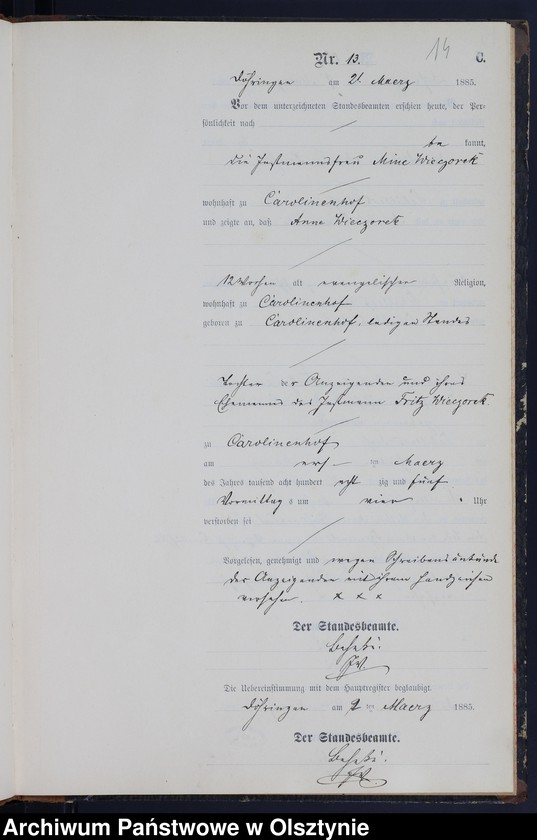 14
Nr. 13. C.
Döhringen am 2t. Maerz 1885.
Vor dem unterzeichneten Standesbeamten erschien heute, der Per-
sönlichkeit nach
be kannt,
die Instmannsfrau Mine Wieczorek
wohnhaft zu Carolinenhof
und zeigte an, daß Anna Wieczorek
12 Wochen alt evangelischer Religion,
wohnhaft zu Carolinenhof
geboren zu Carolinenhof, ledigen Standes
Tochter der Anzeigenden und ihres
Ehemannes des Instmann Fritz Wieczorek
zu Carolinenhof
am ersten Maerz
des Jahres tausend acht hundert acht zig und fünf
Vormittags um vier Uhr
verstorben sei
Vorgelesen, genehmigt und wegen Schreibensunkunde
der Anzeigenden mit ihrem Handzeichen
versehen. x x x
Der Standesbeamte.
Die Uebereinstimmung mit dem Hauptregister beglaubigt.
Döhringen am 2 ten Maerz 1885.
Der Standesbeamte.
Archiwum Państwowe w Olsztynie